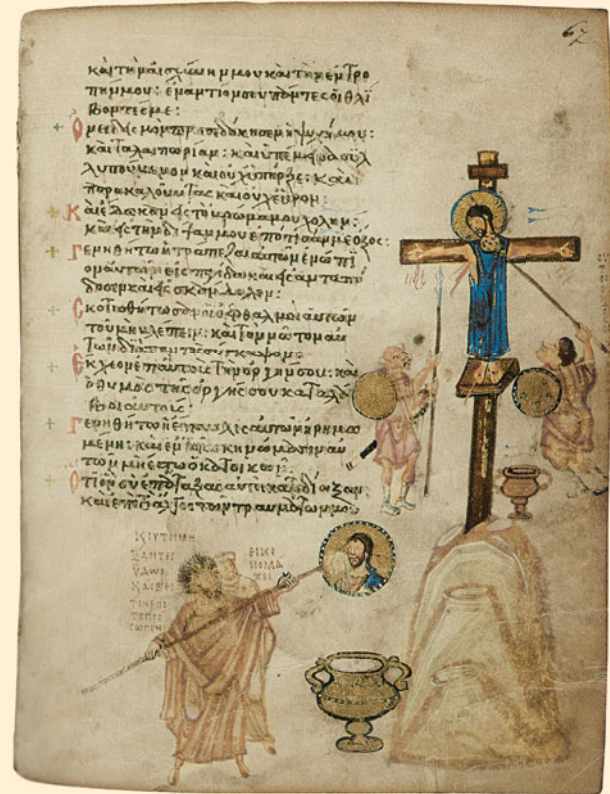 67
καὶ τὴν αἰσχύνην μου καὶ τὴν ἐντρο
πήν μου: ἐναντίον σου πάντες οἱ θλί
βοντές με:
Ὀνειδισμὸν προσεδόκησεν ἡ ψυχή μου:
καὶ ταλαιπωρίαν: καὶ ὑπέμεινα συλ
λυπούμενον καὶ οὐχ ὑπῆρξε: καὶ
παρακαλοῦντας καὶ οὐχ εὗρον:
Καὶ ἔδωκαν εἰς τὸ βρῶμά μου χολήν:
καὶ εἰς τὴν δίψαν μου ἐπότισάν με ὄξος:
Γενηθήτω ἡ τράπεζα αὐτῶν ἐνώπι
ον αὐτῶν εἰς παγίδα καὶ εἰς ἀνταπό
δοσιν καὶ εἰς σκάνδαλον:
Σκοτισθήτωσαν οἱ ὀφθαλμοὶ αὐτῶν
τοῦ μὴ βλέπειν: καὶ τὸν νῶτον αὐ
τῶν διὰ παντὸς σύγκαμψον
Ἔκχεον ἐπ αὐτοὺς τὴν ὀργήν σου: καὶ
ὁ θυμὸς τῆς ὀργῆς σου καταλά
βοι αὐτούς:
Γενηθήτω ἡ ἔπαυλις αὐτῶν ἠρημω
μένη: καὶ ἐν τοῖς σκηνώμασιν αὐ
τῶν μὴ ἔστω ὁ κατοικῶν:
Ὅτι ὃν σὺ ἐπάταξας αὐτοὶ κατεδίωξαν
καὶ ἐπὶ τὸ ἄλγος τῶν τραυμάτων μου
ΥΔΩΡ
ΕΙΚΟ
ΝΟΜΑ
ΧΟΙ